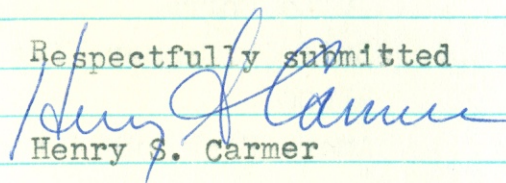 Respectfully submitted
Henry S Carmer
Henry S. Carmer